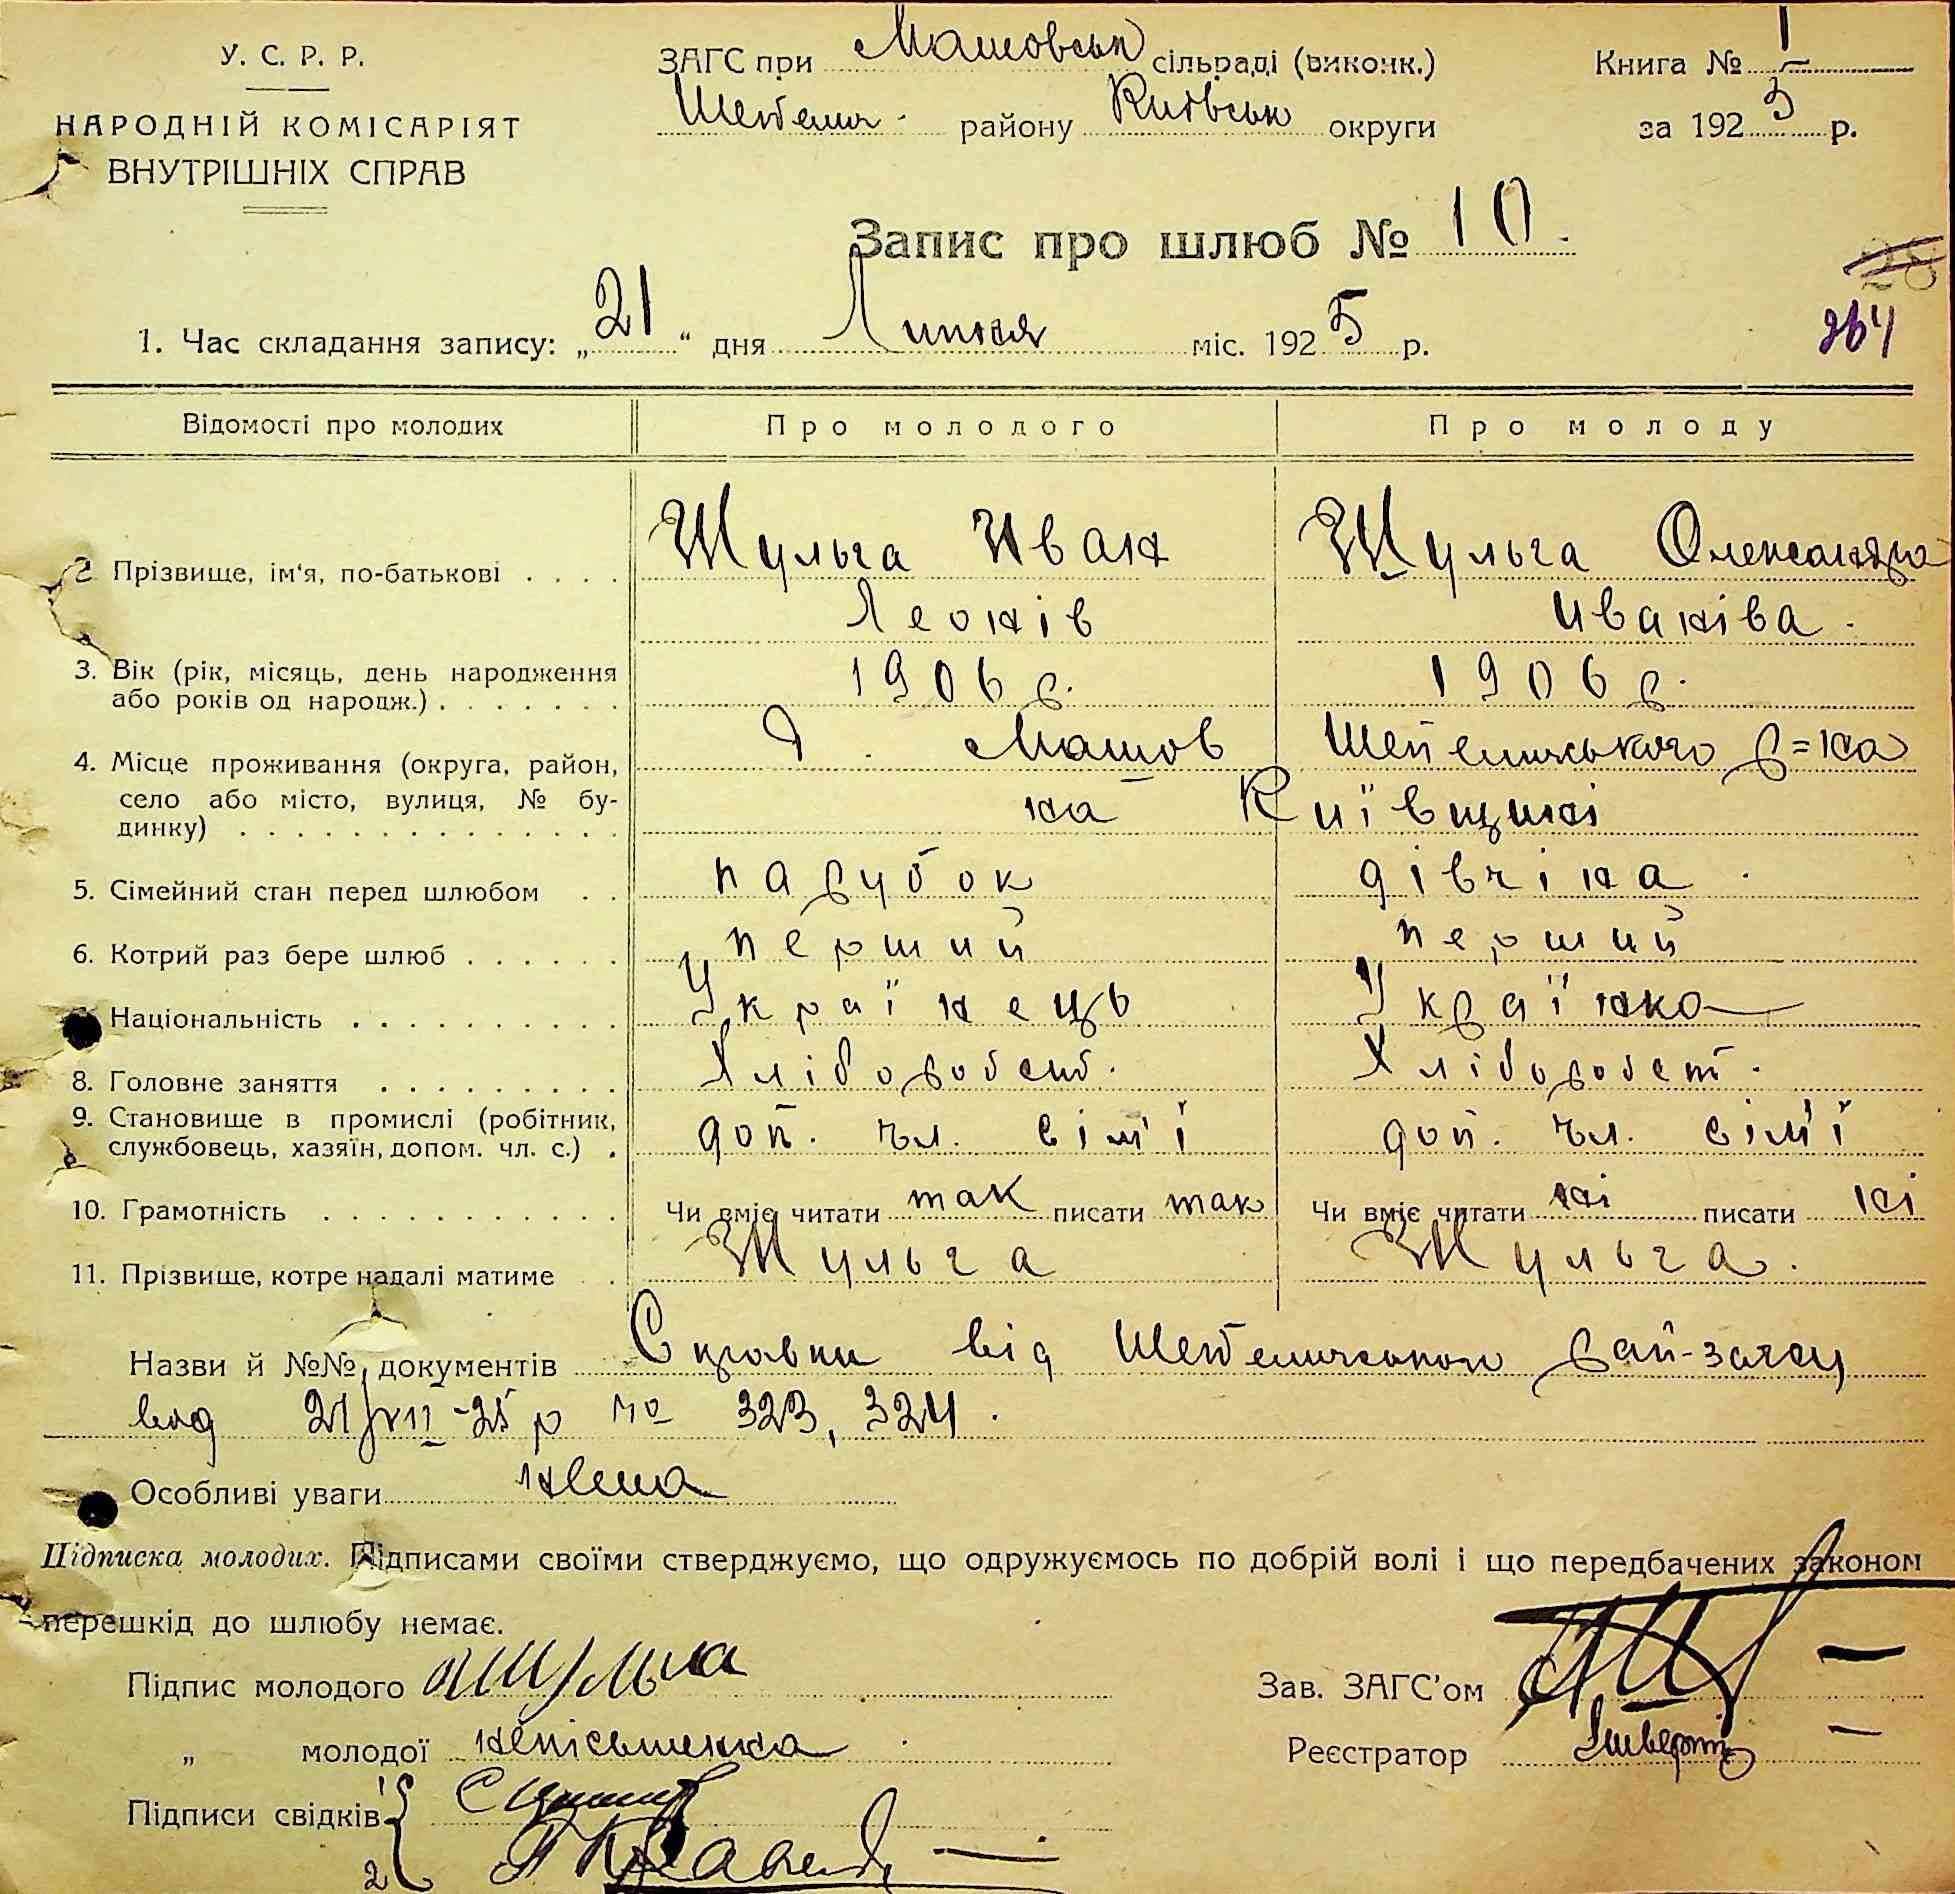 У. С. Р. Р.
НАРОДНІЙ КОМІСАРІЯТ
ВНУТРІШНІХ СПРАВ
ЗАГС при Машовськ сільраді (виконк.)
Шепелич. району Київськ округи
Книга № 1
за 1925 р.
Запис про шлюб № 10.
28
264
1. Час складання запису: „21“ дня Липня міс. 1925 р.
Відомості про молодих Про молодого Про молоду
2. Прізвище, ім'я, по-батькові . . . . Шульга Иван Шульга Олександра
Леонів Иваніва.
3. Вік (рік, місяць, день народження 1906 р. 1906 р.
або років од народж.) . . . . . . .
4. Місце проживання (округа, район, Д. Машов Шепелиського р=на
село або місто, вулиця, № бу- на Київщині
динку) . . . . . . . . . . . . . .
5. Сімейний стан перед шлюбом . . парубок дівчіна.
6. Котрий раз бере шлюб . . . . . . перший перший
Національність . . . . . . . . . . Українець Українка
8. Головне заняття . . . . . . . . . Хлібороб
9. Становище в промислі (робітник, доп. чл. сім'ї доп. чл. сім'ї
службовець, хазяїн, допом. чл. с.) .
10. Грамотність . . . . . . . . . . . Чи вміє читати так писати так Чи вміє читати ні писати ні
11. Прізвище, котре надалі матиме . . Шульга Шульга.
Назви й №№ документів Справки від Шепелиського рай-загсу
від 21/VII-25 р № 323, 324.
Особливі уваги нема
Підписка молодих. Підписами своїми стверджуємо, що одружуємось по добрій волі і що передбачених законом
перешкід до шлюбу немає.
Підпис молодого Шульга
Зав. ЗАГС'ом
„ молодої непісьменна
Реєстратор
Підписи свідків 1
2